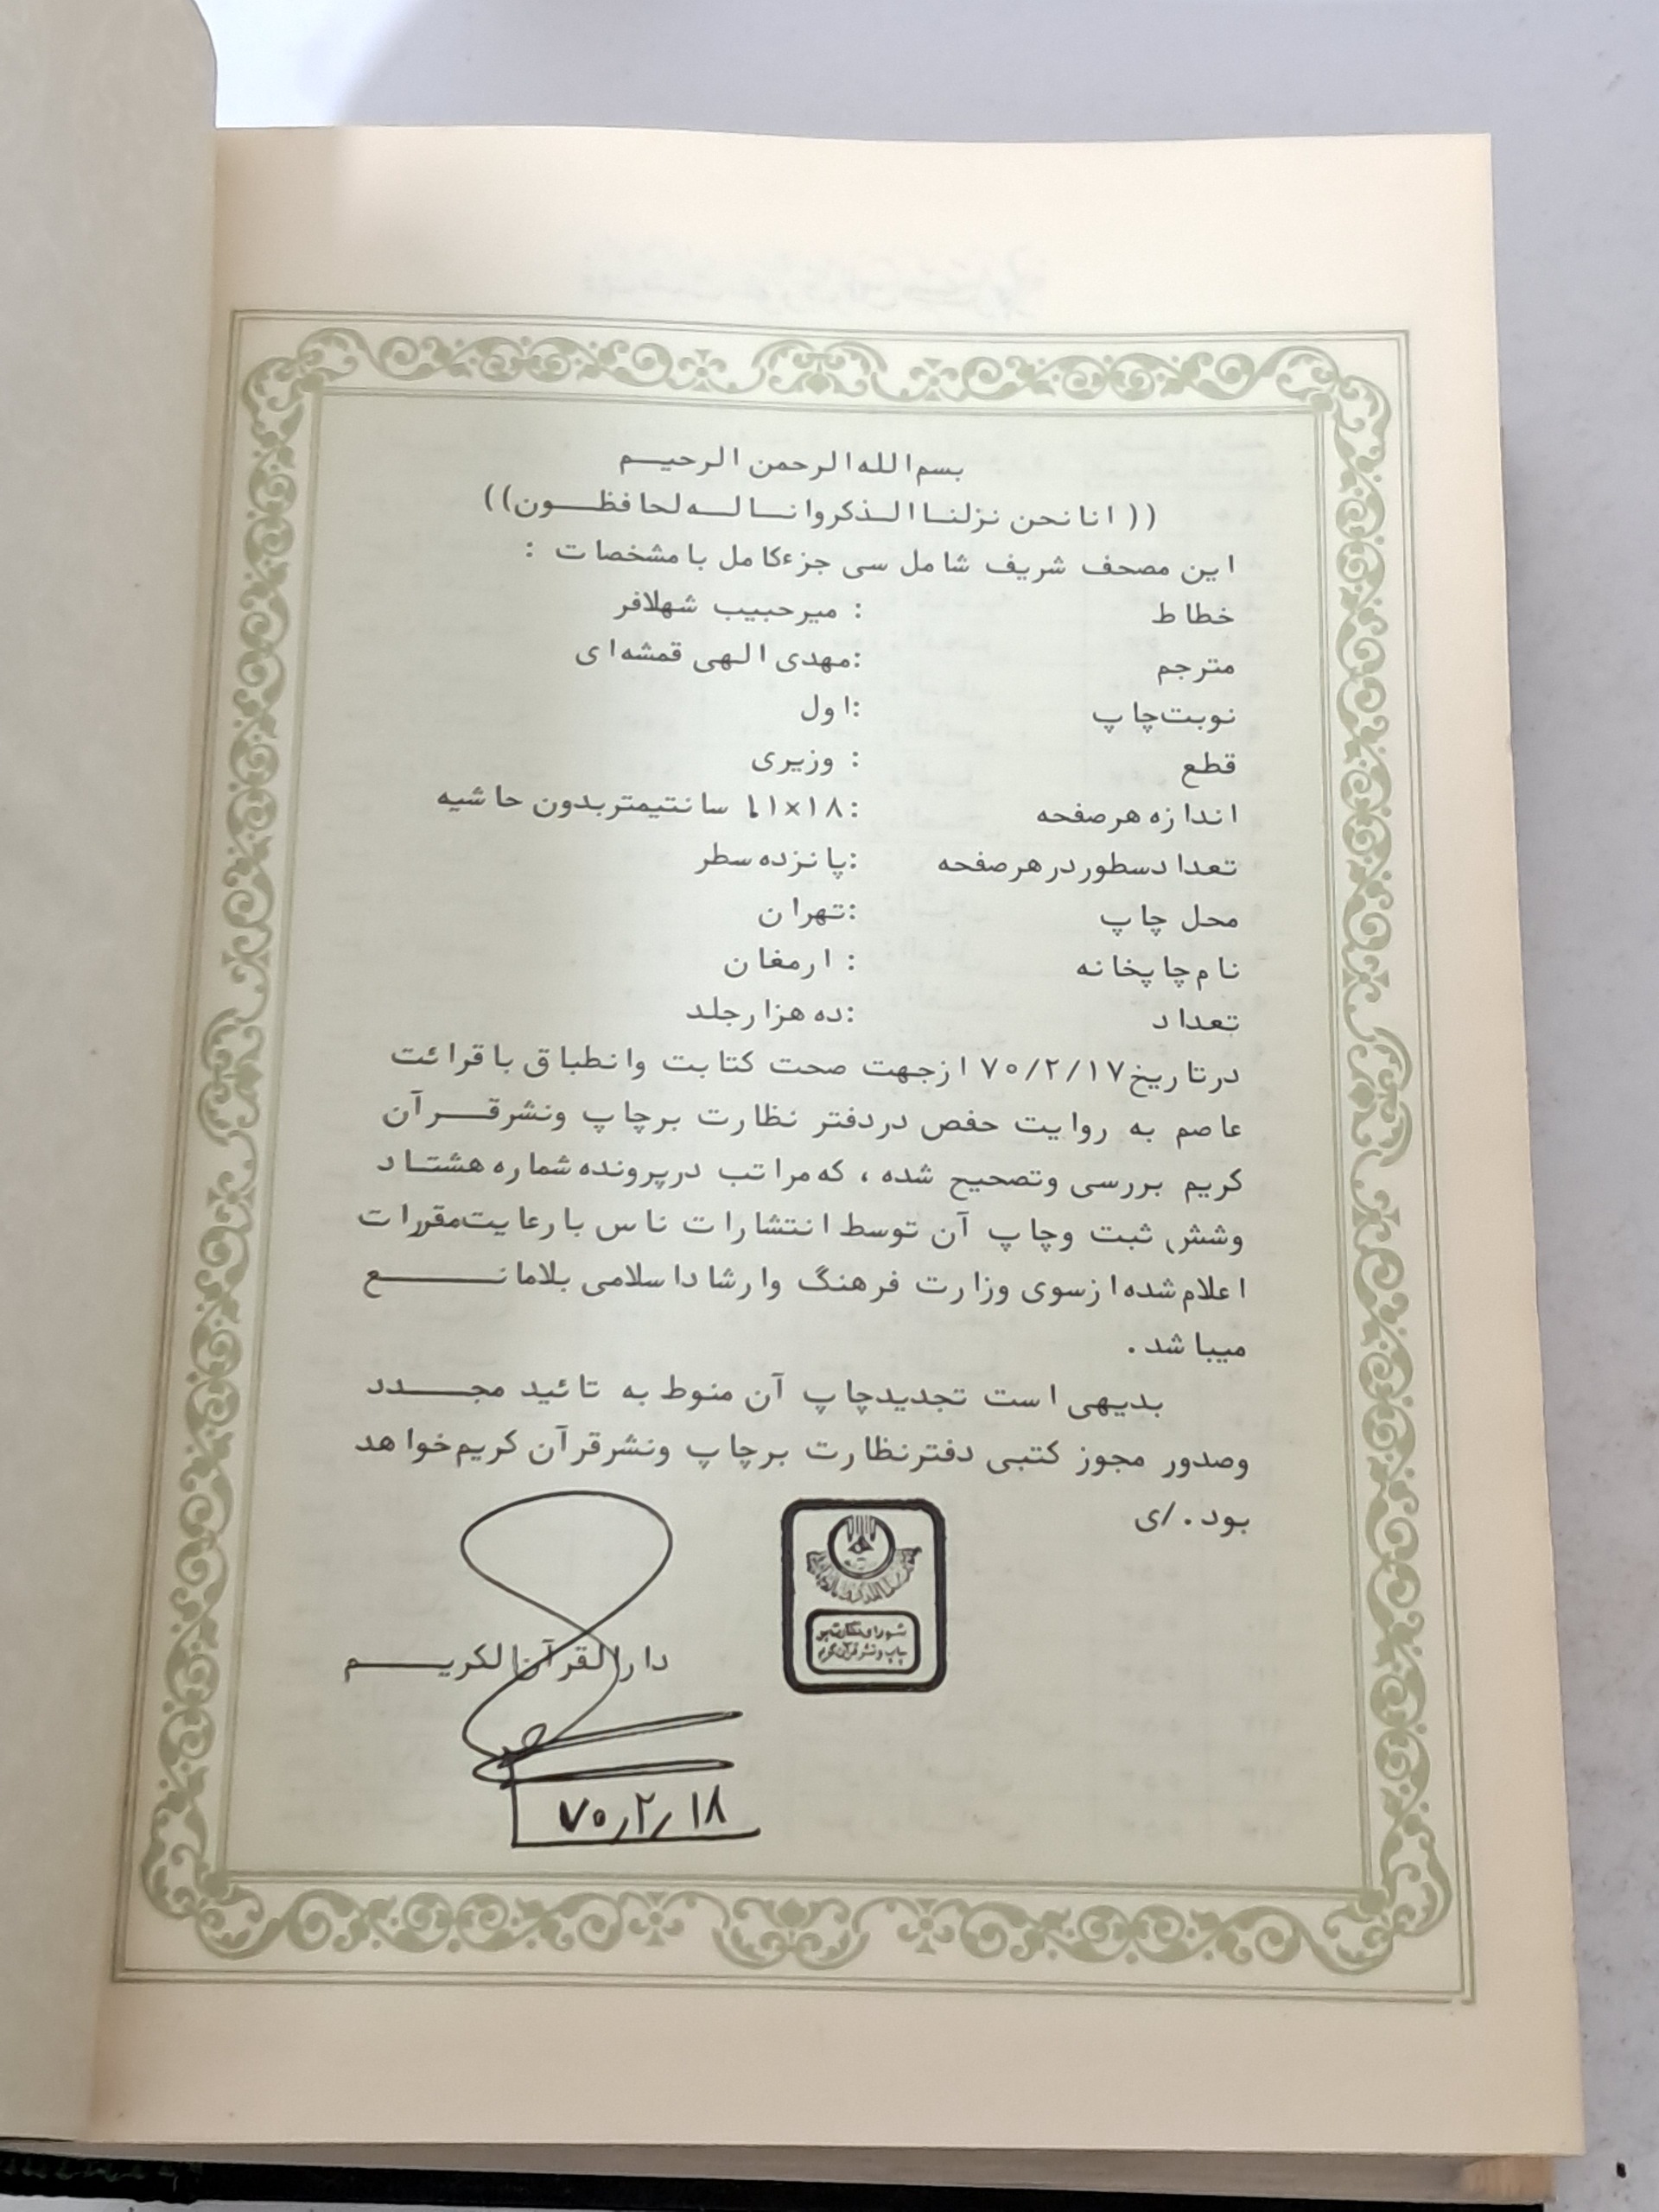 بسم الله الرحمن الرحیم
(( انا نحن نزلنا الذکر وانا له لحافظون))
این مصحف شریف شامل سی جزء کامل با مشخصات :
خطاط : میرحبیب شهلافر
مترجم :مهدی الهی قمشه‌ای
نوبت‌چاپ :اول
قطع : وزیری
اندازه هرصفحه :۱۱×۱۸ سانتیمتربدون حاشیه
تعدادسطوردرهرصفحه :پانزده سطر
محل چاپ :تهران
نام چاپخانه : ارمغان
تعداد :ده هزارجلد
درتاریخ ۷۰/۲/۱۷ ازجهت صحت کتابت وانطباق باقرائت
عاصم به روایت حفص دردفتر نظارت برچاپ ونشرقرآن
کریم بررسی وتصحیح شده ، که مراتب درپرونده شماره هشتاد
وشش ثبت وچاپ آن توسط انتشارات ناس بارعایت‌مقررات
اعلام شده ازسوی وزارت فرهنگ وارشاداسلامی بلامانع
میباشد .
بدیهی است تجدیدچاپ آن منوط به تائید مجدد
وصدور مجوز کتبی دفترنظارت برچاپ ونشرقرآن کریم خواهد
بود . /ی
شورای نظارت بر
چاپ و نشر قرآن کریم
دارالقرآن الکریم
۷۰/۲/۱۸